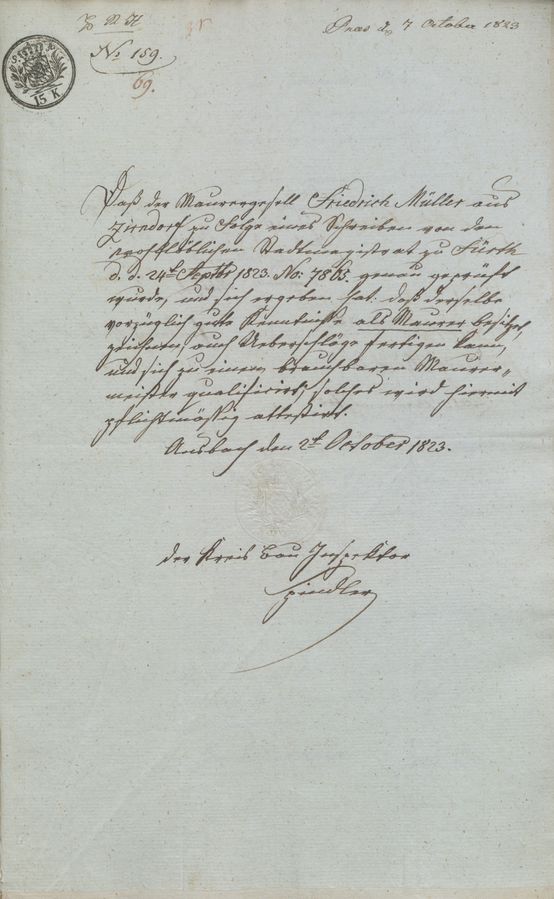 Praes. d. 7 October 1823
No. 159.
69.
15 K
Daß der Maurergesell Friedrich Müller aus
Zirndorf zu Folge eines Schreiben von dem
wohllöblichen Stadtmagistrat zu Fürth
d. d. 24t Septbr 1823. No: 7865. genau geprüft
wurde, und sich ergeben hat: daß derselbe
vorzüglich gute Kenntniße als Maurer besitzet,
zeichnen, auch Ueberschläge fertigen kann,
und sich zu einem brauchbaren Maurer-
meister qualificirt; solches wird hiermit
pflichtmäßig attestirt.
Ansbach den 2t October 1823.
der Kreis Bau Inspektor
Spindler